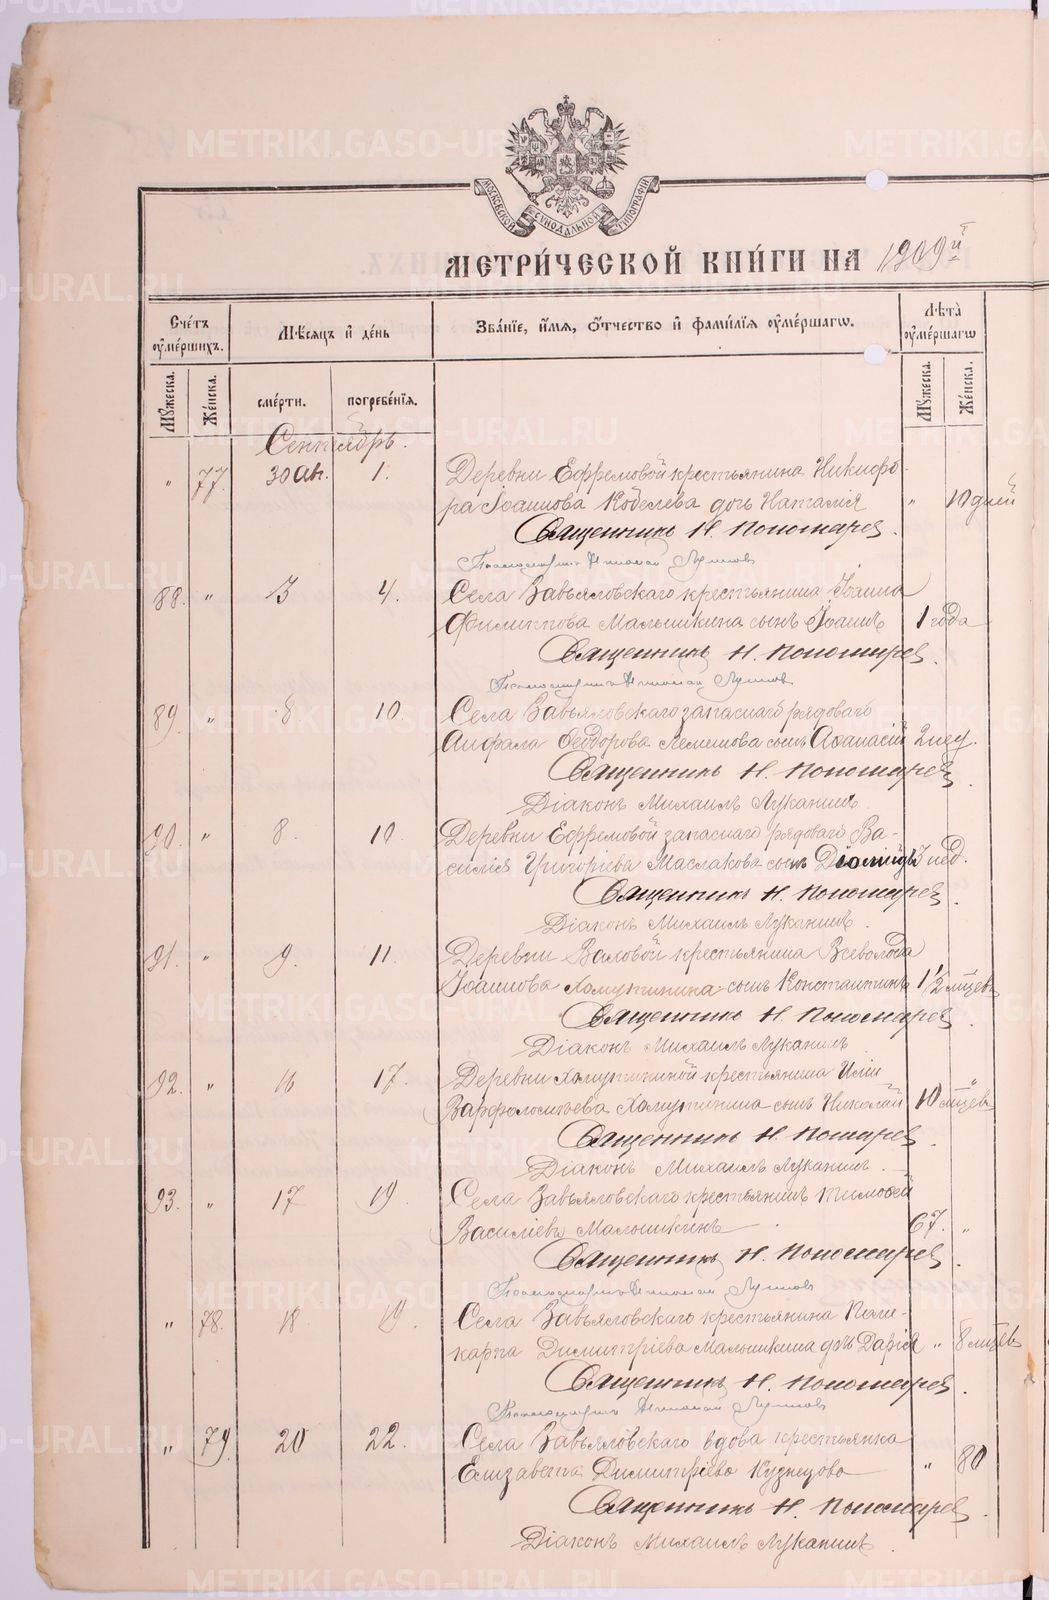 МОСКОВСКОЙ СѴНОДАЛЬНОЙ ТИПОГРАФІИ
МЕТРИ́ЧЕСКОЙ КНИ́ГИ НА 1909й г
Сче́тъ ᲂу҆ме́ршихъ.
Мѣ́сяцъ и҆ де́нь
Зва́нїе, и҆́мѧ, ѻ҆́тчество и҆ фами́лїѧ ᲂу҆ме́ршагѡ.
Лѣта̀ ᲂу҆ме́ршагѡ
Мꙋ́жеска.
Же́нска.
сме́рти.
погребе́нїѧ.
Мꙋ́жеска.
Же́нска.
Сентябрь.
" 77. 30 Ав. 1. Деревни Ефремовой крестьянина Никифо-
ра Іоаннова Кобелева дочь Наталія " 10 дней
Священникъ Н. Пономаревъ.
Псаломщикъ Николай
88. " 3 4. Села Завьяловскаго крестьянина Іоанна
Филиппова Малышкина сынъ Іоаннъ 1 года
Священникъ Н. Пономаревъ.
Псаломщикъ Николай
89. " 8 10. Села Завьяловскаго запаснаго рядоваго
Анфала Ѳеодорова Лемешова сынъ Аѳанасій 2 нед.
Священникъ Н. Пономаревъ.
Діаконъ Михаилъ Луканинъ.
90. " 8. 10. Деревни Ефремовой запаснаго рядоваго Ва-
силія Григоріева Маслакова сынъ Діомидъ 3 нед.
Священникъ Н. Пономаревъ.
Діаконъ Михаилъ Луканинъ.
91. " 9. 11. Деревни Валовой крестьянина Всеволода
Іоаннова Хомутинина сынъ Константинъ 1/2 мѣсяц
Священникъ Н. Пономаревъ.
Діаконъ Михаилъ Луканинъ
92. " 16 17. Деревни Хомутининой крестьянина Иліи
Варфоломѣева Хомутинина сынъ Николай 10 мѣсяц
Священникъ Н. Помаревъ.
Діаконъ Михаилъ Луканинъ.
93. " 17 19. Села Завьяловскаго крестьянинъ Тимоѳей
Василіевъ Малышкинъ 67. "
Священникъ Н. Пономаревъ.
Псаломщикъ Николай
" 78. 18 19. Села Завьяловскаго крестьянина Поли-
карпа Димитріева Малышкина дочь Дарія " 8 мѣсяц
Священникъ Н. Пономаревъ.
Псаломщикъ Николай
" 79. 20 22. Села Завьяловскаго вдова крестьянка
Елизавета Димитріева Кузнецова " 80
Священникъ Н. Пономаревъ.
Діаконъ Михаилъ Луканинъ.
METRIKI.GASO-URAL.RU